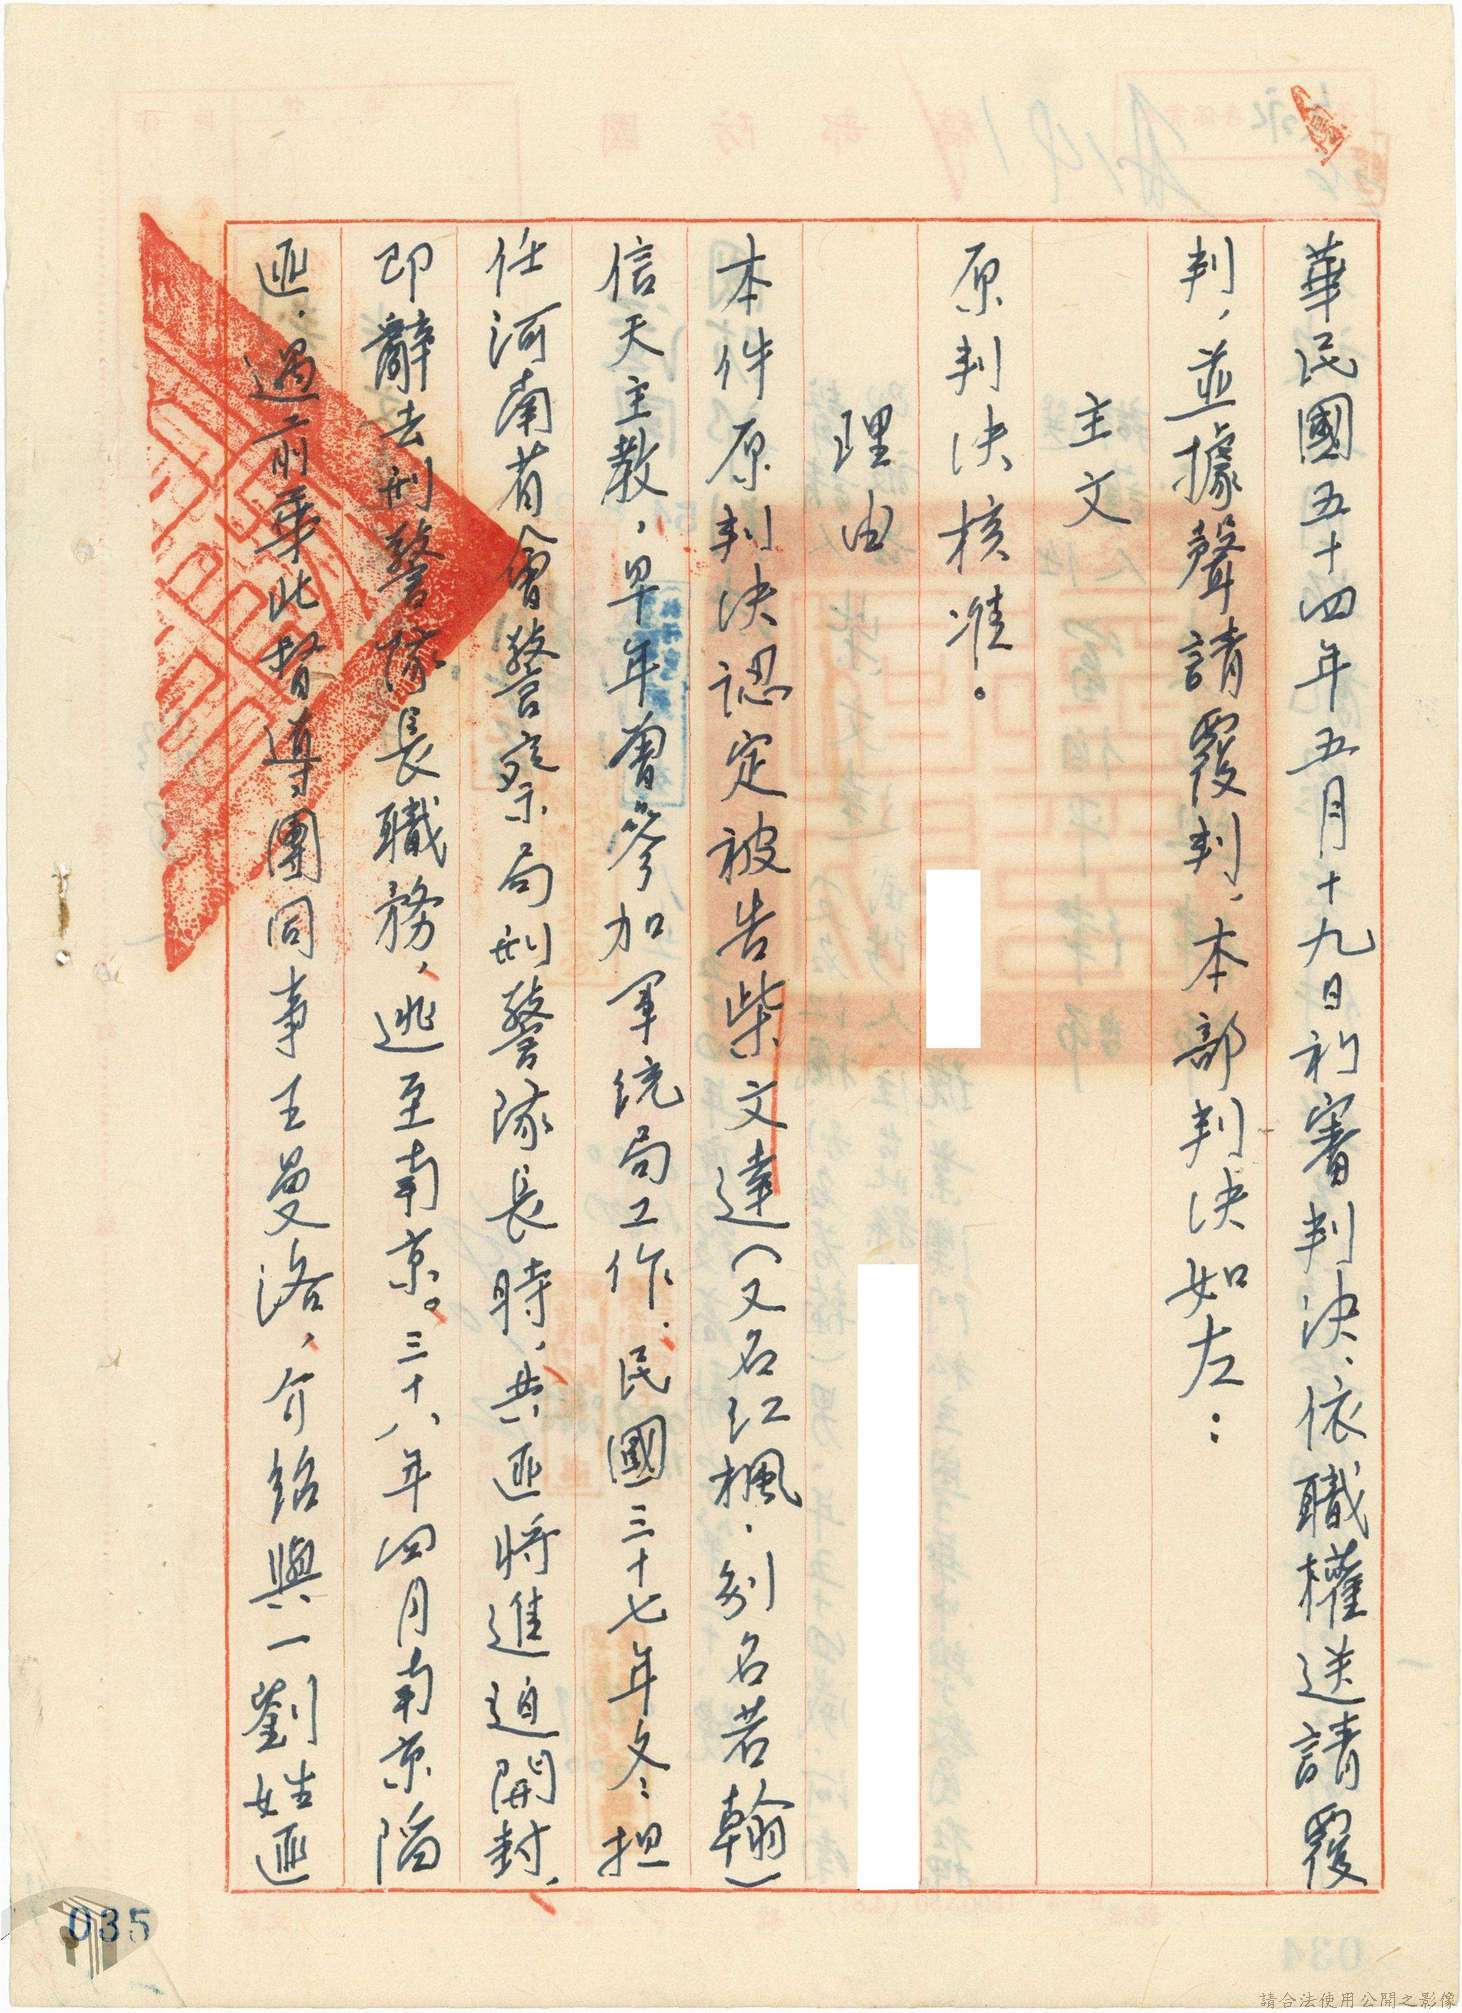 華民國五十四年五月十九日初審判決、依職權送請覆
判，並據聲請覆判、本部判決如左：
主文
原判決核准。
理由
本件原判決認定被告柴文達（又名江楓．別名若翰）
信天主教，早年曾參加軍統局工作．民國三十七年冬、担
任河南省會警察局刑警隊長時、共匪將進迫開封、
即辭去刑警隊長職務，逃至南京。三十八年四月南京陷
匪．遇前華北督導團同事王曼洛，介紹與一劉姓匪
035
請合法使用公開之影像